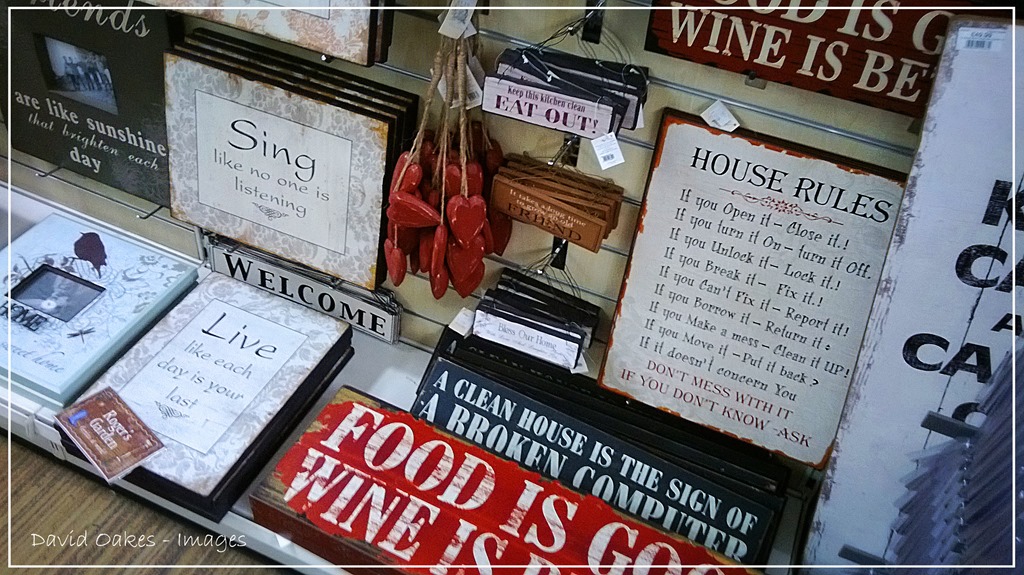 are like sunshine
that brighten each
day
Sing
like no one is
listening
WELCOME
Live
like each
day is your
last
HOME
keep this kitchen clean
EAT OUT!
FRIEND
Bless Our Home
FOOD IS GO
WINE IS BE
HOUSE RULES
If you Open it - Close it.!
If you turn it On - turn it Off.
If you Unlock it - Lock it.!
If you Break it - Fix it.!
If you Can't Fix it - Report it!
If you Borrow it - Return it:
If you Make a mess - Clean it UP!
If you Move it - Put it back.?
If it doesn't concern You
DON'T MESS WITH IT
IF YOU DON'T KNOW - ASK
A CLEAN HOUSE IS THE SIGN OF
A BROKEN COMPUTER
FOOD IS GOO
WINE IS
CA
CA
£49.99
David Oakes - Images